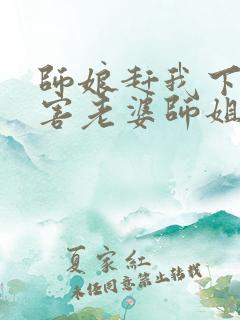 師娘赶我下
害老婆師姐
夏家紅
未經同意禁止轉載